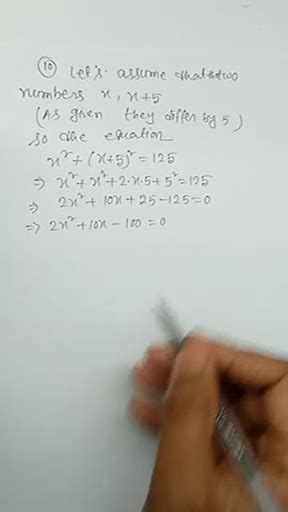 (10) Let's assume that two
numbers x, x+5
(As given they differ by 5)
So the equation
x² + (x+5)² = 125
⇒ x² + x² + 2·x·5 + 5² = 125
⇒ 2x² + 10x + 25 - 125 = 0
⇒ 2x² + 10x - 100 = 0